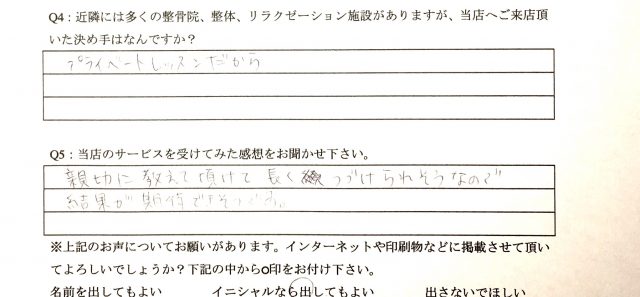 Q4：近隣には多くの整骨院、整体、リラクゼーション施設がありますが、当店へご来店頂
いた決め手はなんですか？
プライベートレッスンだから
Q5：当店のサービスを受けてみた感想をお聞かせ下さい。
親切に教えて頂けて長くつづけられそうなので
結果が期待できそうです。
※上記のお声についてお願いがあります。インターネットや印刷物などに掲載させて頂い
てよろしいでしょうか？下記の中からo印をお付け下さい。
名前を出してもよい　イニシャルなら出してもよい　出さないでほしい